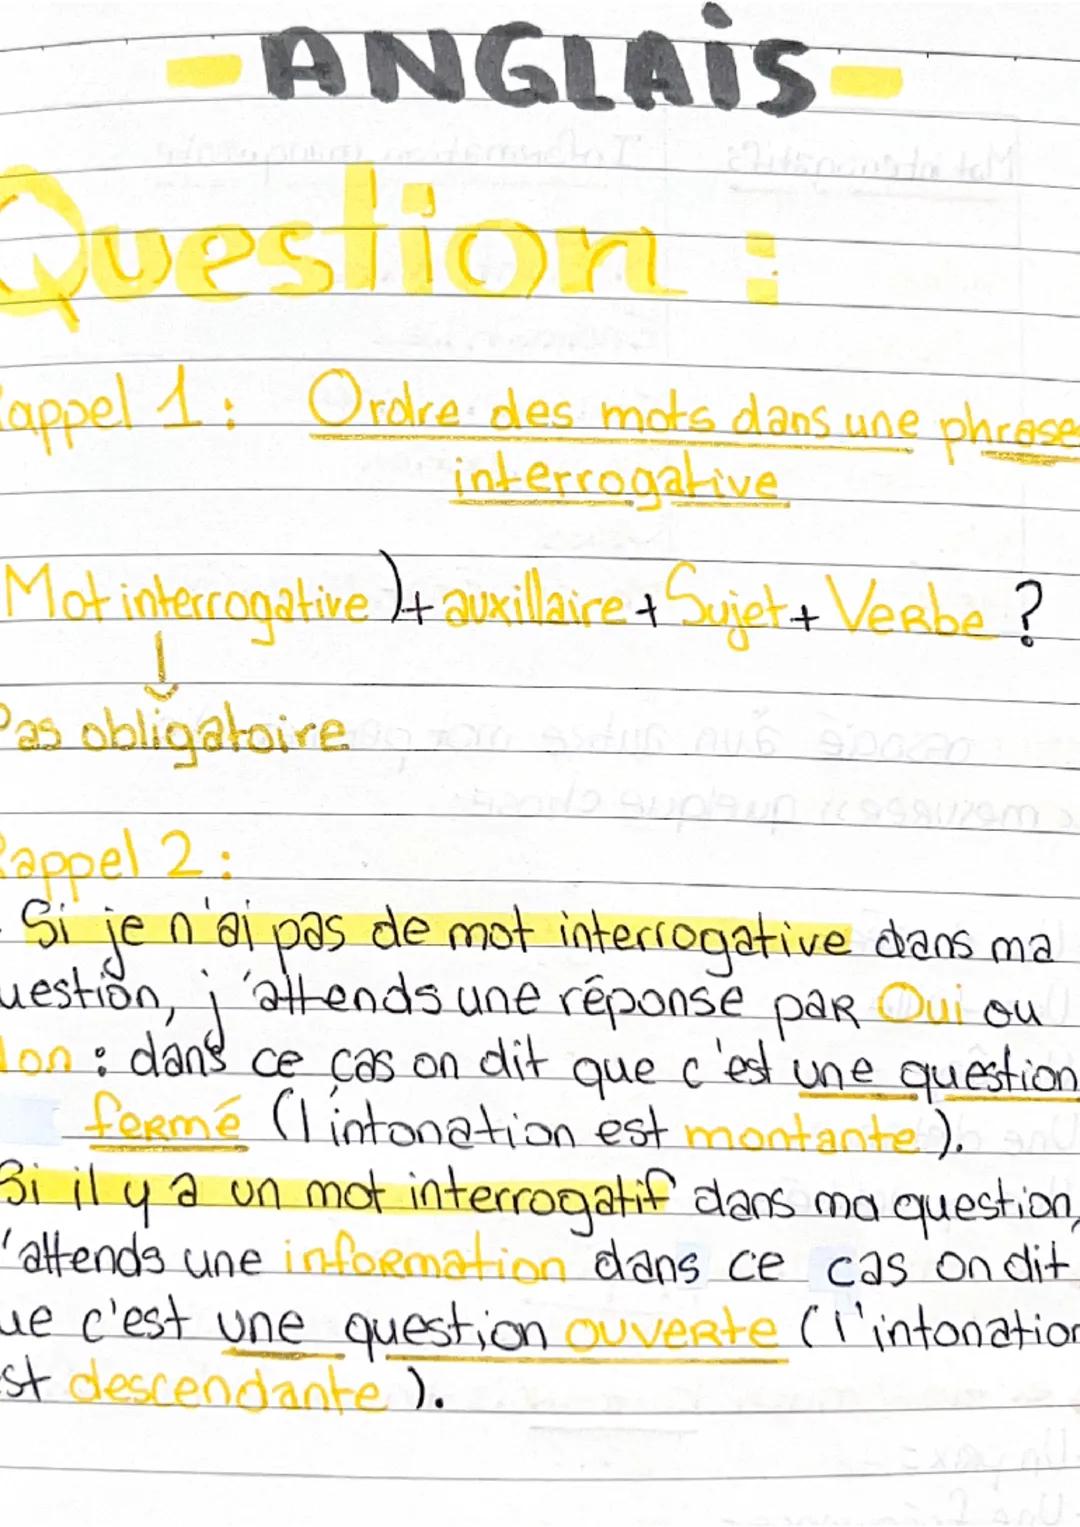 - ANGLAIS -
Question :
Rappel 1 : Ordre des mots dans une phrase
interrogative
Mot interrogative ) + auxillaire + Sujet + Verbe ?
↓
Pas obligatoire
Rappel 2 :
- Si je n'ai pas de mot interrogative dans ma
question, j'attends une réponse par Oui ou
Non : dans ce cas on dit que c'est une question
fermé (l'intonation est montante).
Si il y a un mot interrogatif dans ma question,
j'attends une information dans ce cas on dit
que c'est une question ouverte (l'intonation
est descendante).